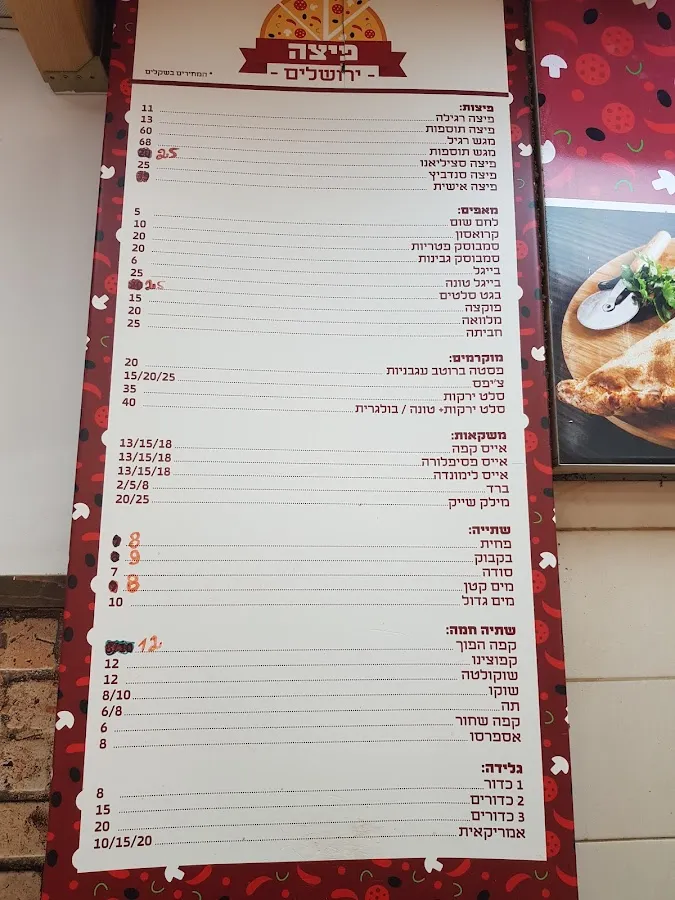 פיצה
- ירושלים -
* המחירים בשקלים
פיצות:
פיצה רגילה 11
פיצה תוספות 13
מגש רגיל 60
מגש תוספות 68
פיצה סציליאנו 25
פיצה סנדביץ 25
פיצה אישית
מאפים:
לחם שום 5
קרואסון 10
סמבוסק פטריות 20
סמבוסק גבינות 20
בייגל 6
בייגל טונה 25
בגט סלטים 25
פוקצה 15
מלוואה 20
חביתה 25
מוקרמים:
פסטה ברוטב עגבניות 20
צ'יפס 15/20/25
סלט ירקות 35
סלט ירקות+ טונה / בולגרית 40
משקאות:
אייס קפה 13/15/18
אייס פסיפלורה 13/15/18
אייס לימונדה 13/15/18
ברד 2/5/8
מילק שייק 20/25
שתייה:
פחית 8
בקבוק 9
סודה 7
מים קטן 8
מים גדול 10
שתיה חמה:
קפה הפוך 12
קפוצינו 12
שוקולטה 12
שוקו 8/10
תה 6/8
קפה שחור 6
אספרסו 8
גלידה:
1 כדור 8
2 כדורים 15
3 כדורים 20
אמריקאית 10/15/20